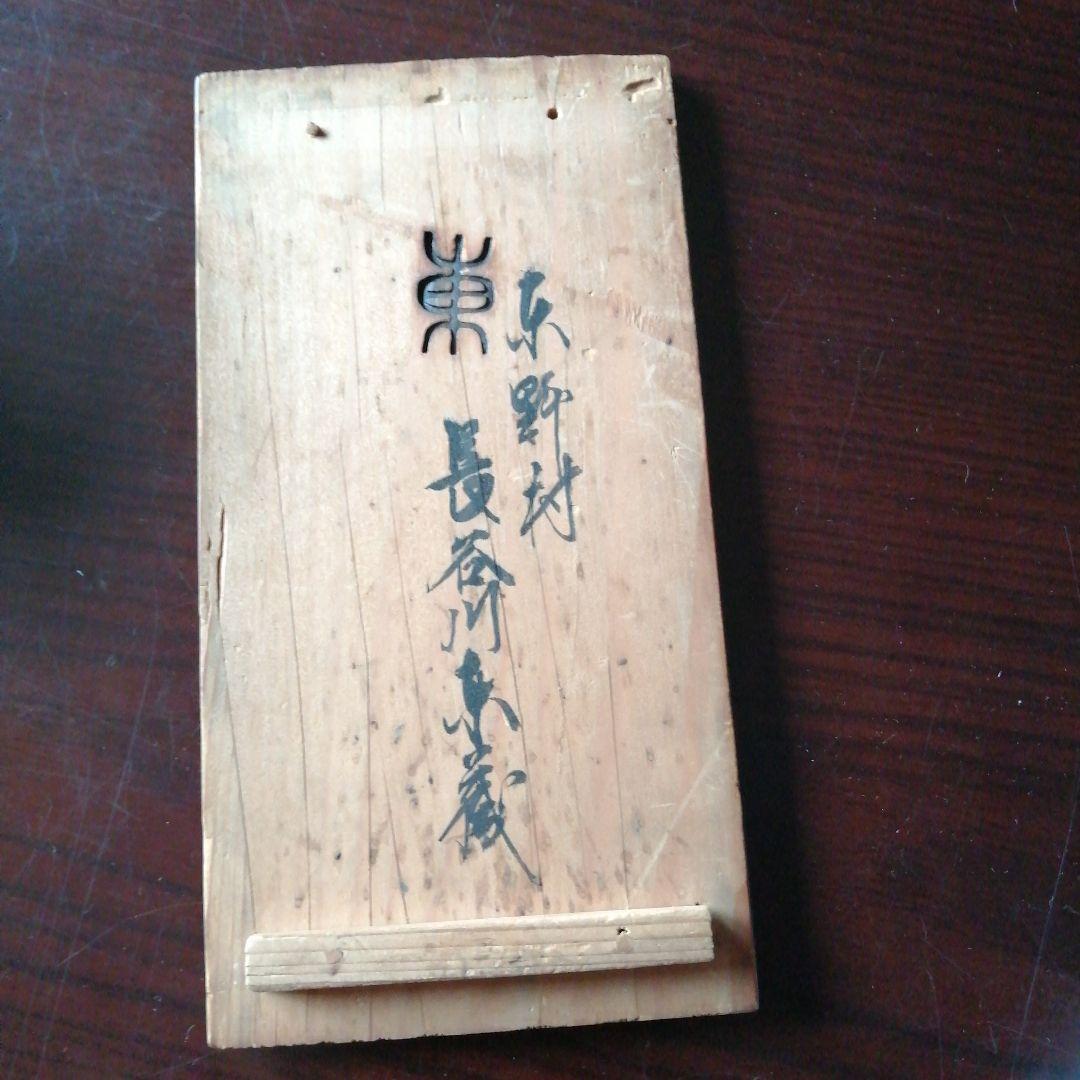 東野村
東
長谷川東蔵